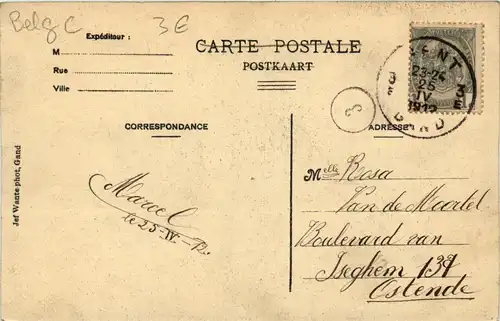 Belg C
3 E
Expéditeur :
M
Rue
Ville
CARTE POSTALE
POSTKAART
GENT
23-24
25
IV
1912
3
E
GAND
3
CORRESPONDANCE
ADRESSE
Jef Wante phot, Gand
Marcel
le 25-IV-12.
Melle Rosa
Van de Moortel
Boulevard van
Iseghem 139
Ostende